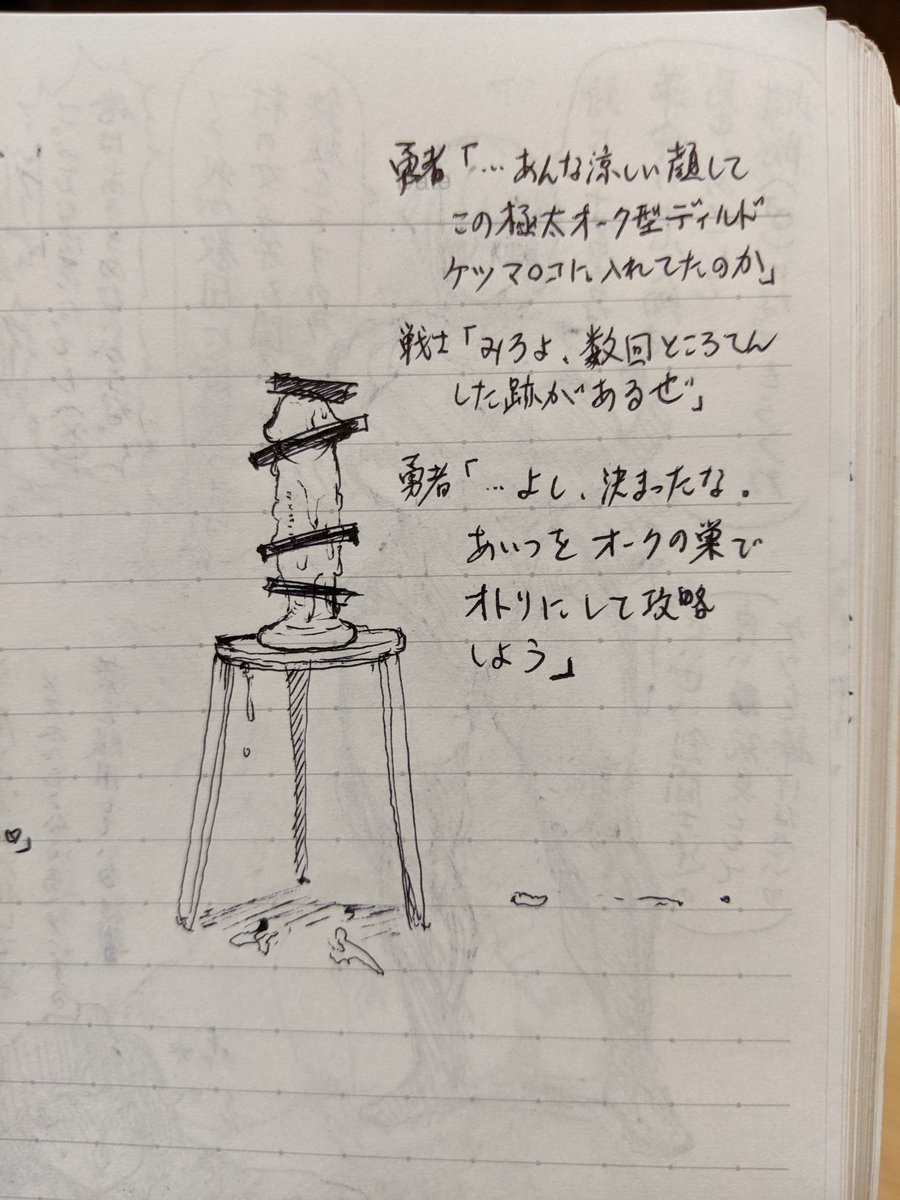 勇者「…あんな涼しい顔して
この極太オーク型ディルド
ケツマ○コに入れてたのか」
戦士「みろよ、数回ところてん
した跡があるぜ」
勇者「…よし、決まったな。
あいつをオークの巣で
オトリにして攻略
しよう」
♡」